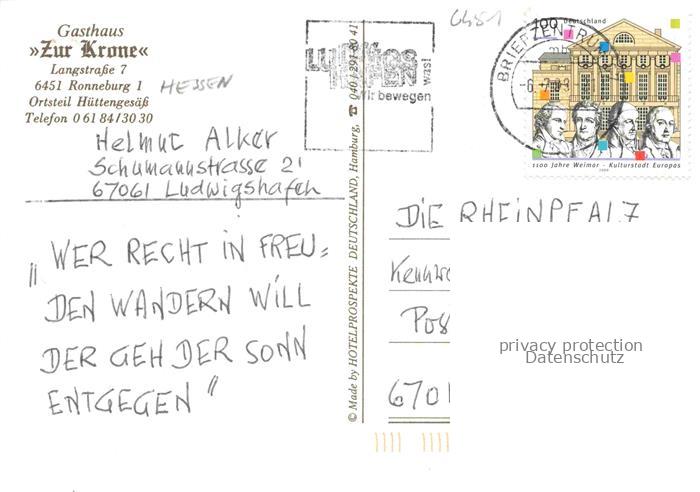 Gasthaus
»Zur Krone«
Langstraße 7
6451 Ronneburg 1
Ortsteil Hüttengesäß
Telefon 0 61 84/30 30
HESSEN
Helmut Alker
Schumannstrasse 21
67061 Ludwigshafen
„WER RECHT IN FREU=
DEN WANDERN WILL
DER GEH DER SONN
ENTGEGEN"
© Made by HOTELPROSPEKTE DEUTSCHLAND, Hamburg, ☎ 040 / 291 80 41
was!
wir bewegen
BRIEFZENTRUM
100 Deutschland
1100 Jahre Weimar - Kulturstadt Europas
1999
DIE RHEINPFALZ
Kennw
Pos
670
privacy protection
Datenschutz